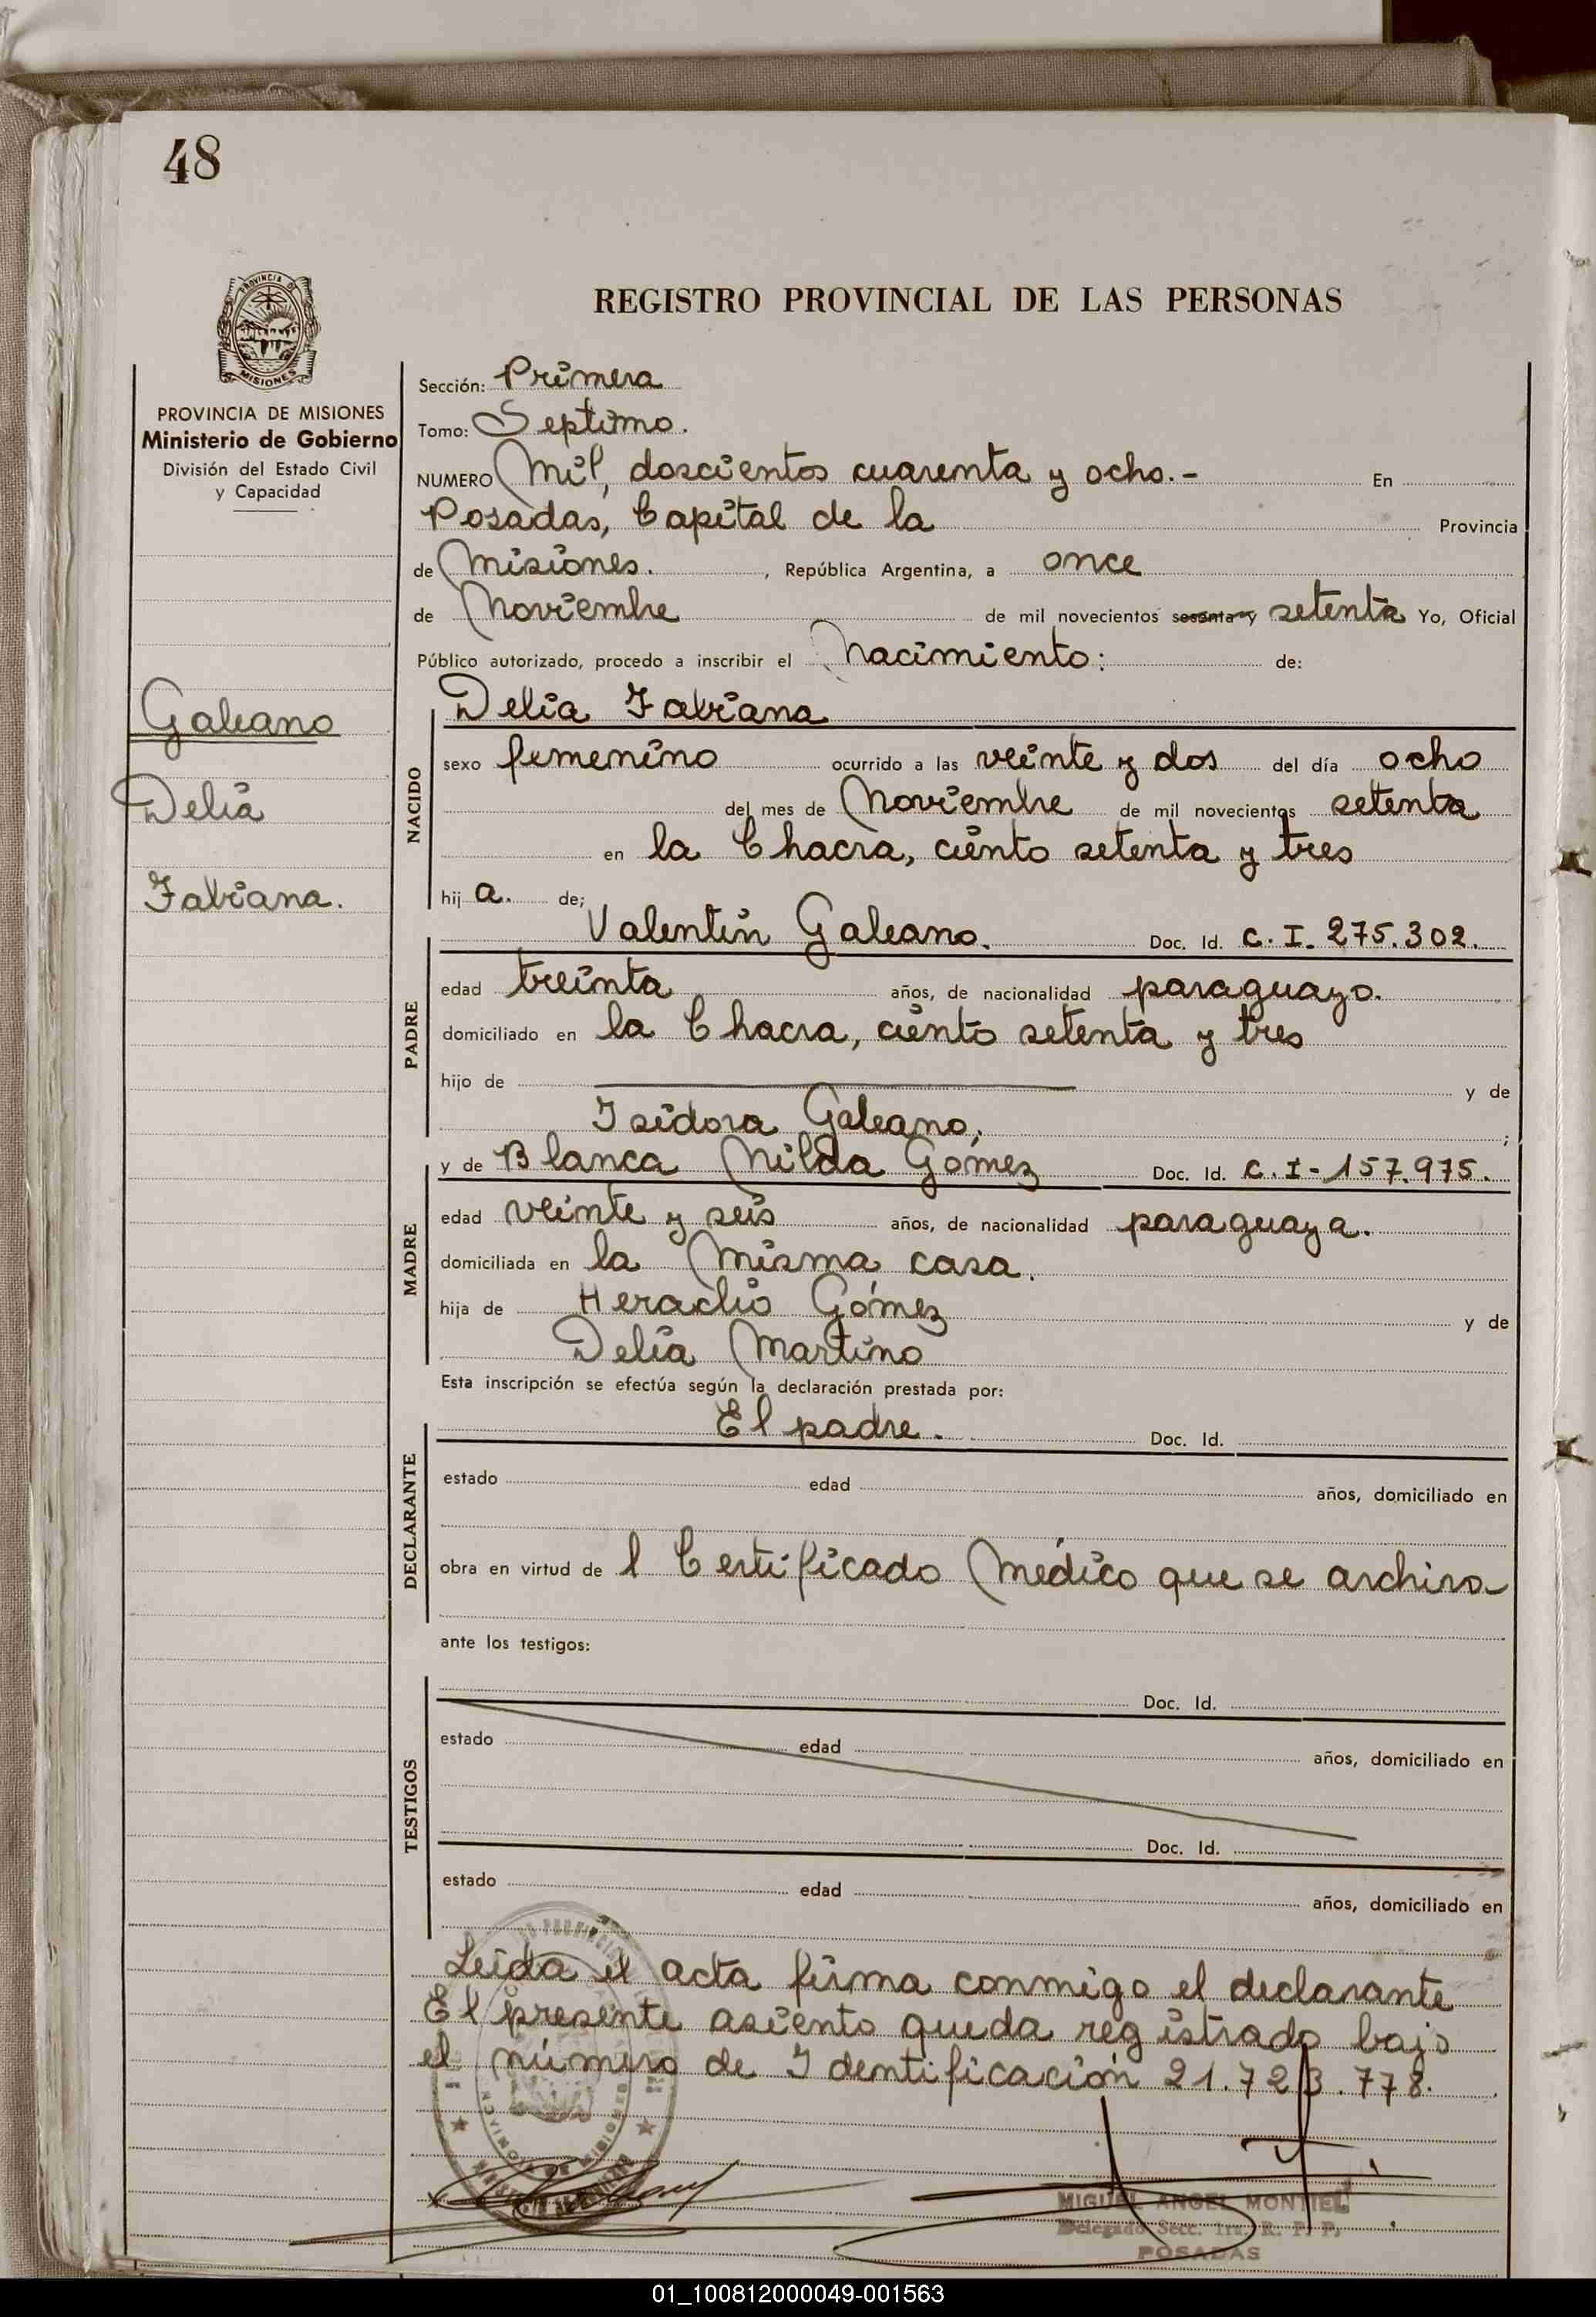 48
PROVINCIA DE
MISIONES
PROVINCIA DE MISIONES
Ministerio de Gobierno
División del Estado Civil
y Capacidad
Galeano
Delia
Fabiana.
REGISTRO PROVINCIAL DE LAS PERSONAS
Sección: Primera
Tomo: Septimo.
NUMERO Mil, doscientos cuarenta y ocho.- En
Posadas, Capital de la Provincia
de Misiones. , República Argentina, a once
de Noviembre de mil novecientos sesenta y setenta Yo, Oficial
Público autorizado, procedo a inscribir el Nacimiento: de:
Delia Fabiana
NACIDO
sexo femenino ocurrido a las veinte y dos del día ocho
del mes de Noviembre de mil novecientos setenta
en la Chacra, ciento setenta y tres
hij a. de;
Valentin Galeano. Doc. Id. C. I. 275.302.
PADRE
edad treinta años, de nacionalidad paraguayo.
domiciliado en la Chacra, ciento setenta y tres
hijo de y de
Isidora Galeano; ;
y de Blanca Nilda Gómez Doc. Id. C. I- 157.975.
MADRE
edad veinte y seis años, de nacionalidad paraguaya.
domiciliada en la misma casa.
hija de Heraclio Gómez y de
Delia Martino
Esta inscripción se efectúa según la declaración prestada por:
El padre. Doc. Id.
DECLARANTE
estado edad años, domiciliado en
obra en virtud de l Certificado Médico que se archiva
ante los testigos:
TESTIGOS
Doc. Id.
estado edad años, domiciliado en
Doc. Id.
estado edad años, domiciliado en
Leida el acta firma conmigo el declarante
El presente asiento queda registrado bajo
el número de Identificación 21.723.778.
MIGUEL ANGEL MONTIEL
Delegado Secc. 1ra. R. P. P.
POSADAS
01_100812000049-001563